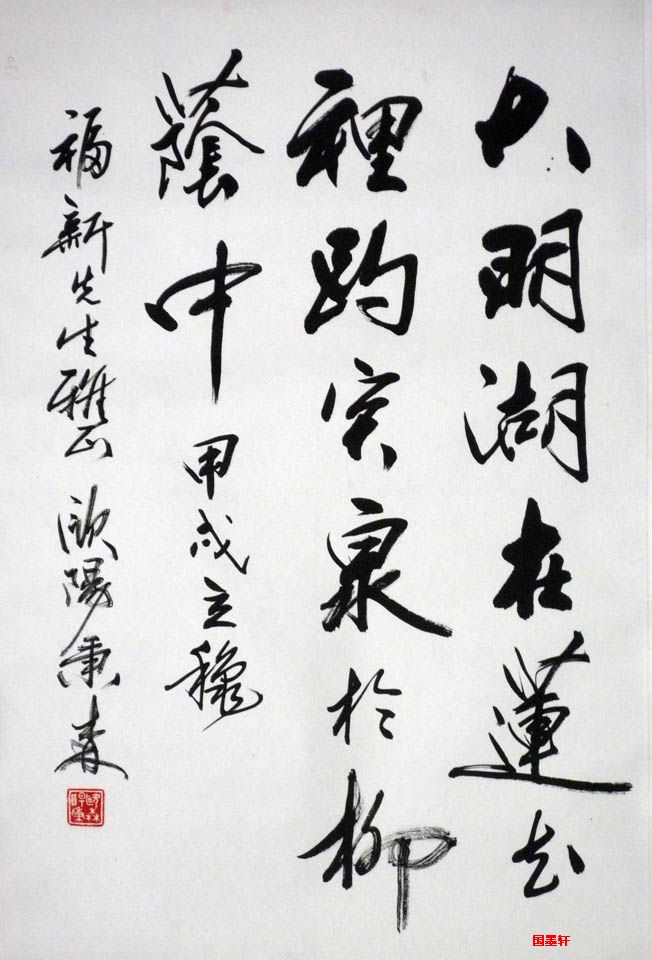 大明湖在蓮花
裡趵突泉於柳
蔭中 甲戌立秋
福新先生雅正 歐陽秉森
国墨轩